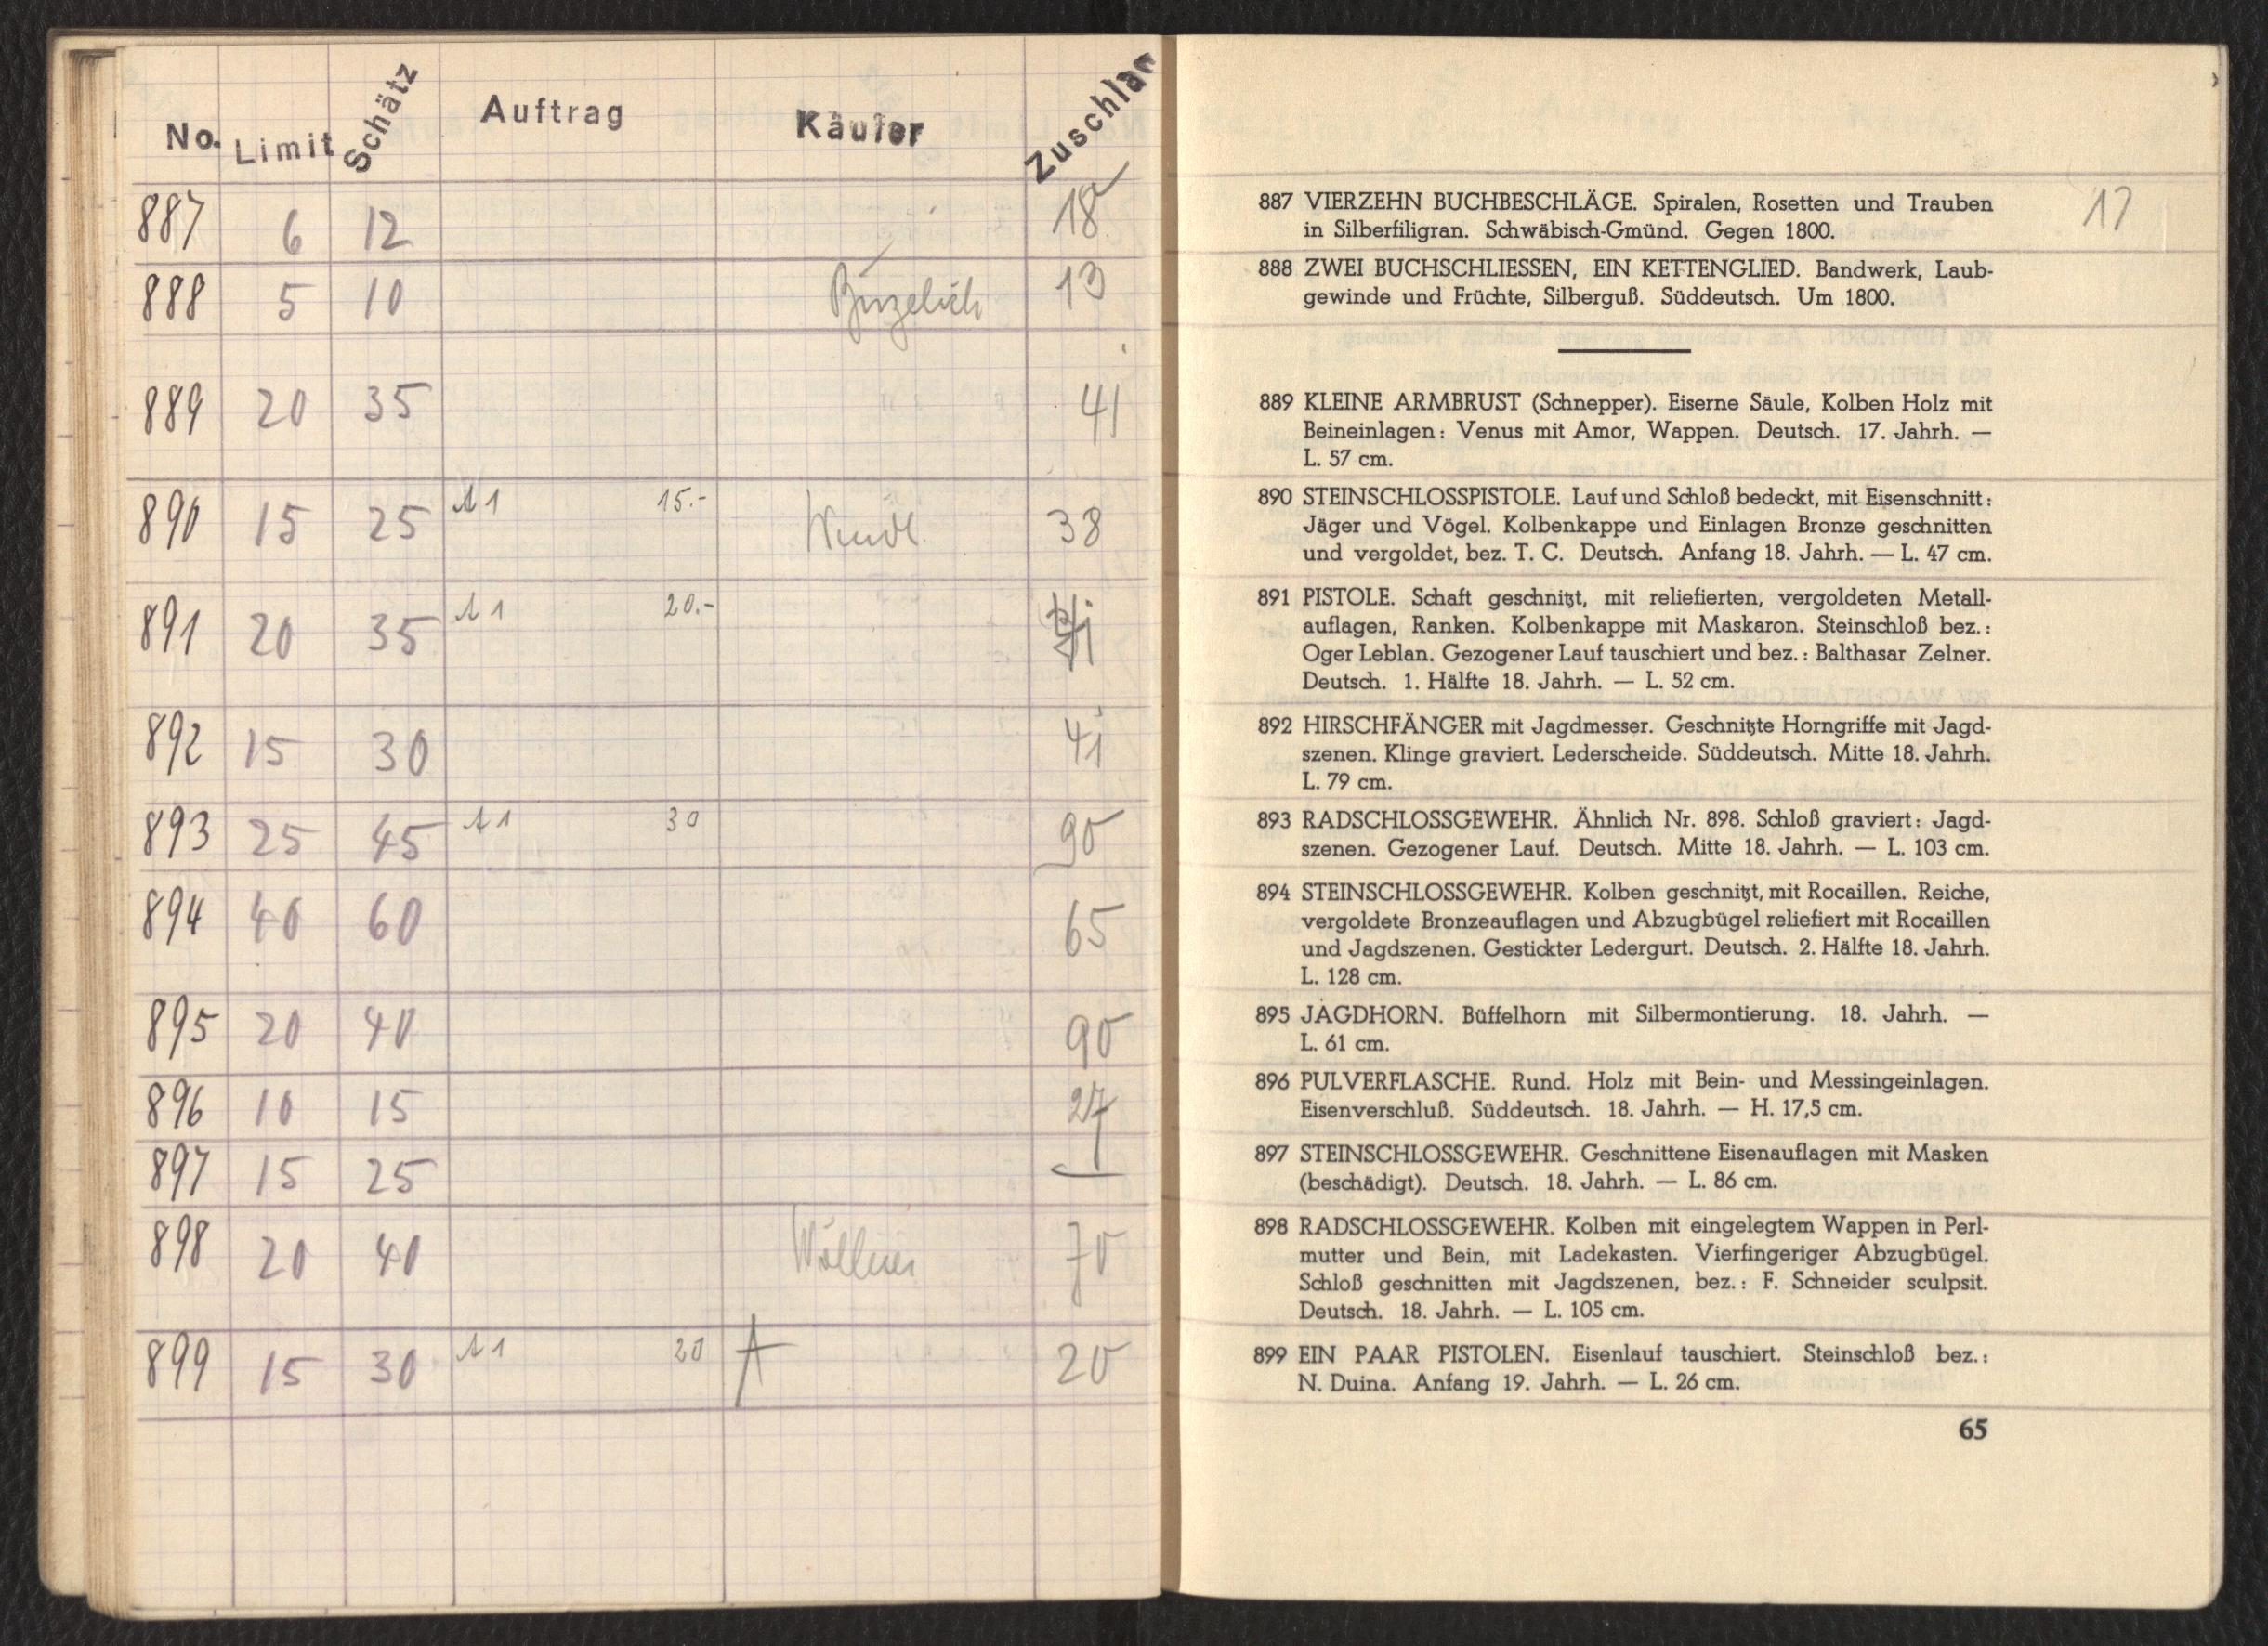 No. Limit Schätz Auftrag Käufer Zuschlag
887 6 12 18
888 5 10 13
889 20 35 41
890 15 25 15.- 38
891 20 35 20.-
892 15 30 41
893 25 45 30 90
894 40 60 65
895 20 40 90
896 10 15 27
897 15 25
898 20 40 70
899 15 30 20 A 20
887 VIERZEHN BUCHBESCHLÄGE. Spiralen, Rosetten und Trauben 17
in Silberfiligran. Schwäbisch-Gmünd. Gegen 1800.
888 ZWEI BUCHSCHLIESSEN, EIN KETTENGLIED. Bandwerk, Laub-
gewinde und Früchte, Silberguß. Süddeutsch. Um 1800.
889 KLEINE ARMBRUST (Schnepper). Eiserne Säule, Kolben Holz mit
Beineinlagen: Venus mit Amor, Wappen. Deutsch. 17. Jahrh. —
L. 57 cm.
890 STEINSCHLOSSPISTOLE. Lauf und Schloß bedeckt, mit Eisenschnitt:
Jäger und Vögel. Kolbenkappe und Einlagen Bronze geschnitten
und vergoldet, bez. T. C. Deutsch. Anfang 18. Jahrh. — L. 47 cm.
891 PISTOLE. Schaft geschnitzt, mit reliefierten, vergoldeten Metall-
auflagen, Ranken. Kolbenkappe mit Maskaron. Steinschloß bez.:
Oger Leblan. Gezogener Lauf tauschiert und bez.: Balthasar Zelner.
Deutsch. 1. Hälfte 18. Jahrh. — L. 52 cm.
892 HIRSCHFÄNGER mit Jagdmesser. Geschnitzte Horngriffe mit Jagd-
szenen. Klinge graviert. Lederscheide. Süddeutsch. Mitte 18. Jahrh.
L. 79 cm.
893 RADSCHLOSSGEWEHR. Ähnlich Nr. 898. Schloß graviert: Jagd-
szenen. Gezogener Lauf. Deutsch. Mitte 18. Jahrh. — L. 103 cm.
894 STEINSCHLOSSGEWEHR. Kolben geschnitzt, mit Rocaillen. Reiche,
vergoldete Bronzeauflagen und Abzugbügel reliefiert mit Rocaillen
und Jagdszenen. Gestickter Ledergurt. Deutsch. 2. Hälfte 18. Jahrh.
L. 128 cm.
895 JAGDHORN. Büffelhorn mit Silbermontierung. 18. Jahrh. —
L. 61 cm.
896 PULVERFLASCHE. Rund. Holz mit Bein- und Messingeinlagen.
Eisenverschluß. Süddeutsch. 18. Jahrh. — H. 17,5 cm.
897 STEINSCHLOSSGEWEHR. Geschnittene Eisenauflagen mit Masken
(beschädigt). Deutsch. 18. Jahrh. — L. 86 cm.
898 RADSCHLOSSGEWEHR. Kolben mit eingelegtem Wappen in Perl-
mutter und Bein, mit Ladekasten. Vierfingeriger Abzugbügel.
Schloß geschnitten mit Jagdszenen, bez.: F. Schneider sculpsit.
Deutsch. 18. Jahrh. — L. 105 cm.
899 EIN PAAR PISTOLEN. Eisenlauf tauschiert. Steinschloß bez.:
N. Duina. Anfang 19. Jahrh. — L. 26 cm.
65